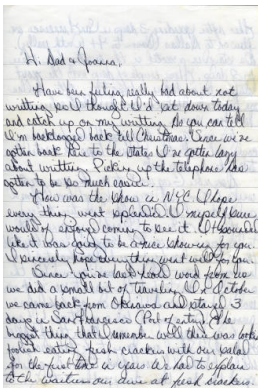 Hi Dad & Joanna,
Have been feeling really bad about not
writting so I thought I'd set down today
and catch up on my writting. As you can tell
I'm backlogged back till Christmas. Since we've
gotten back here to the States I've gotten lazy
about writting. Picking up the telephone has
gotten to be so much easier.
How was the show in N.Y.C. I hope
every thing went splended. I myself sure
would of enjoyed coming to see it. It sounded
like it was going to be a nice showing for you.
I sincerely hope every thing went well for you.
Since you've last heard word from us
we did a small bit of traveling. In October
we came back from Okinawa and stayed 3
days in San Francisco (Port of entry). The
biggest thing that I remember well this was
foolish eating fresh crackers with our salad
for the first time in years. We had to explain
to the waitress our desire at fresh crackers.